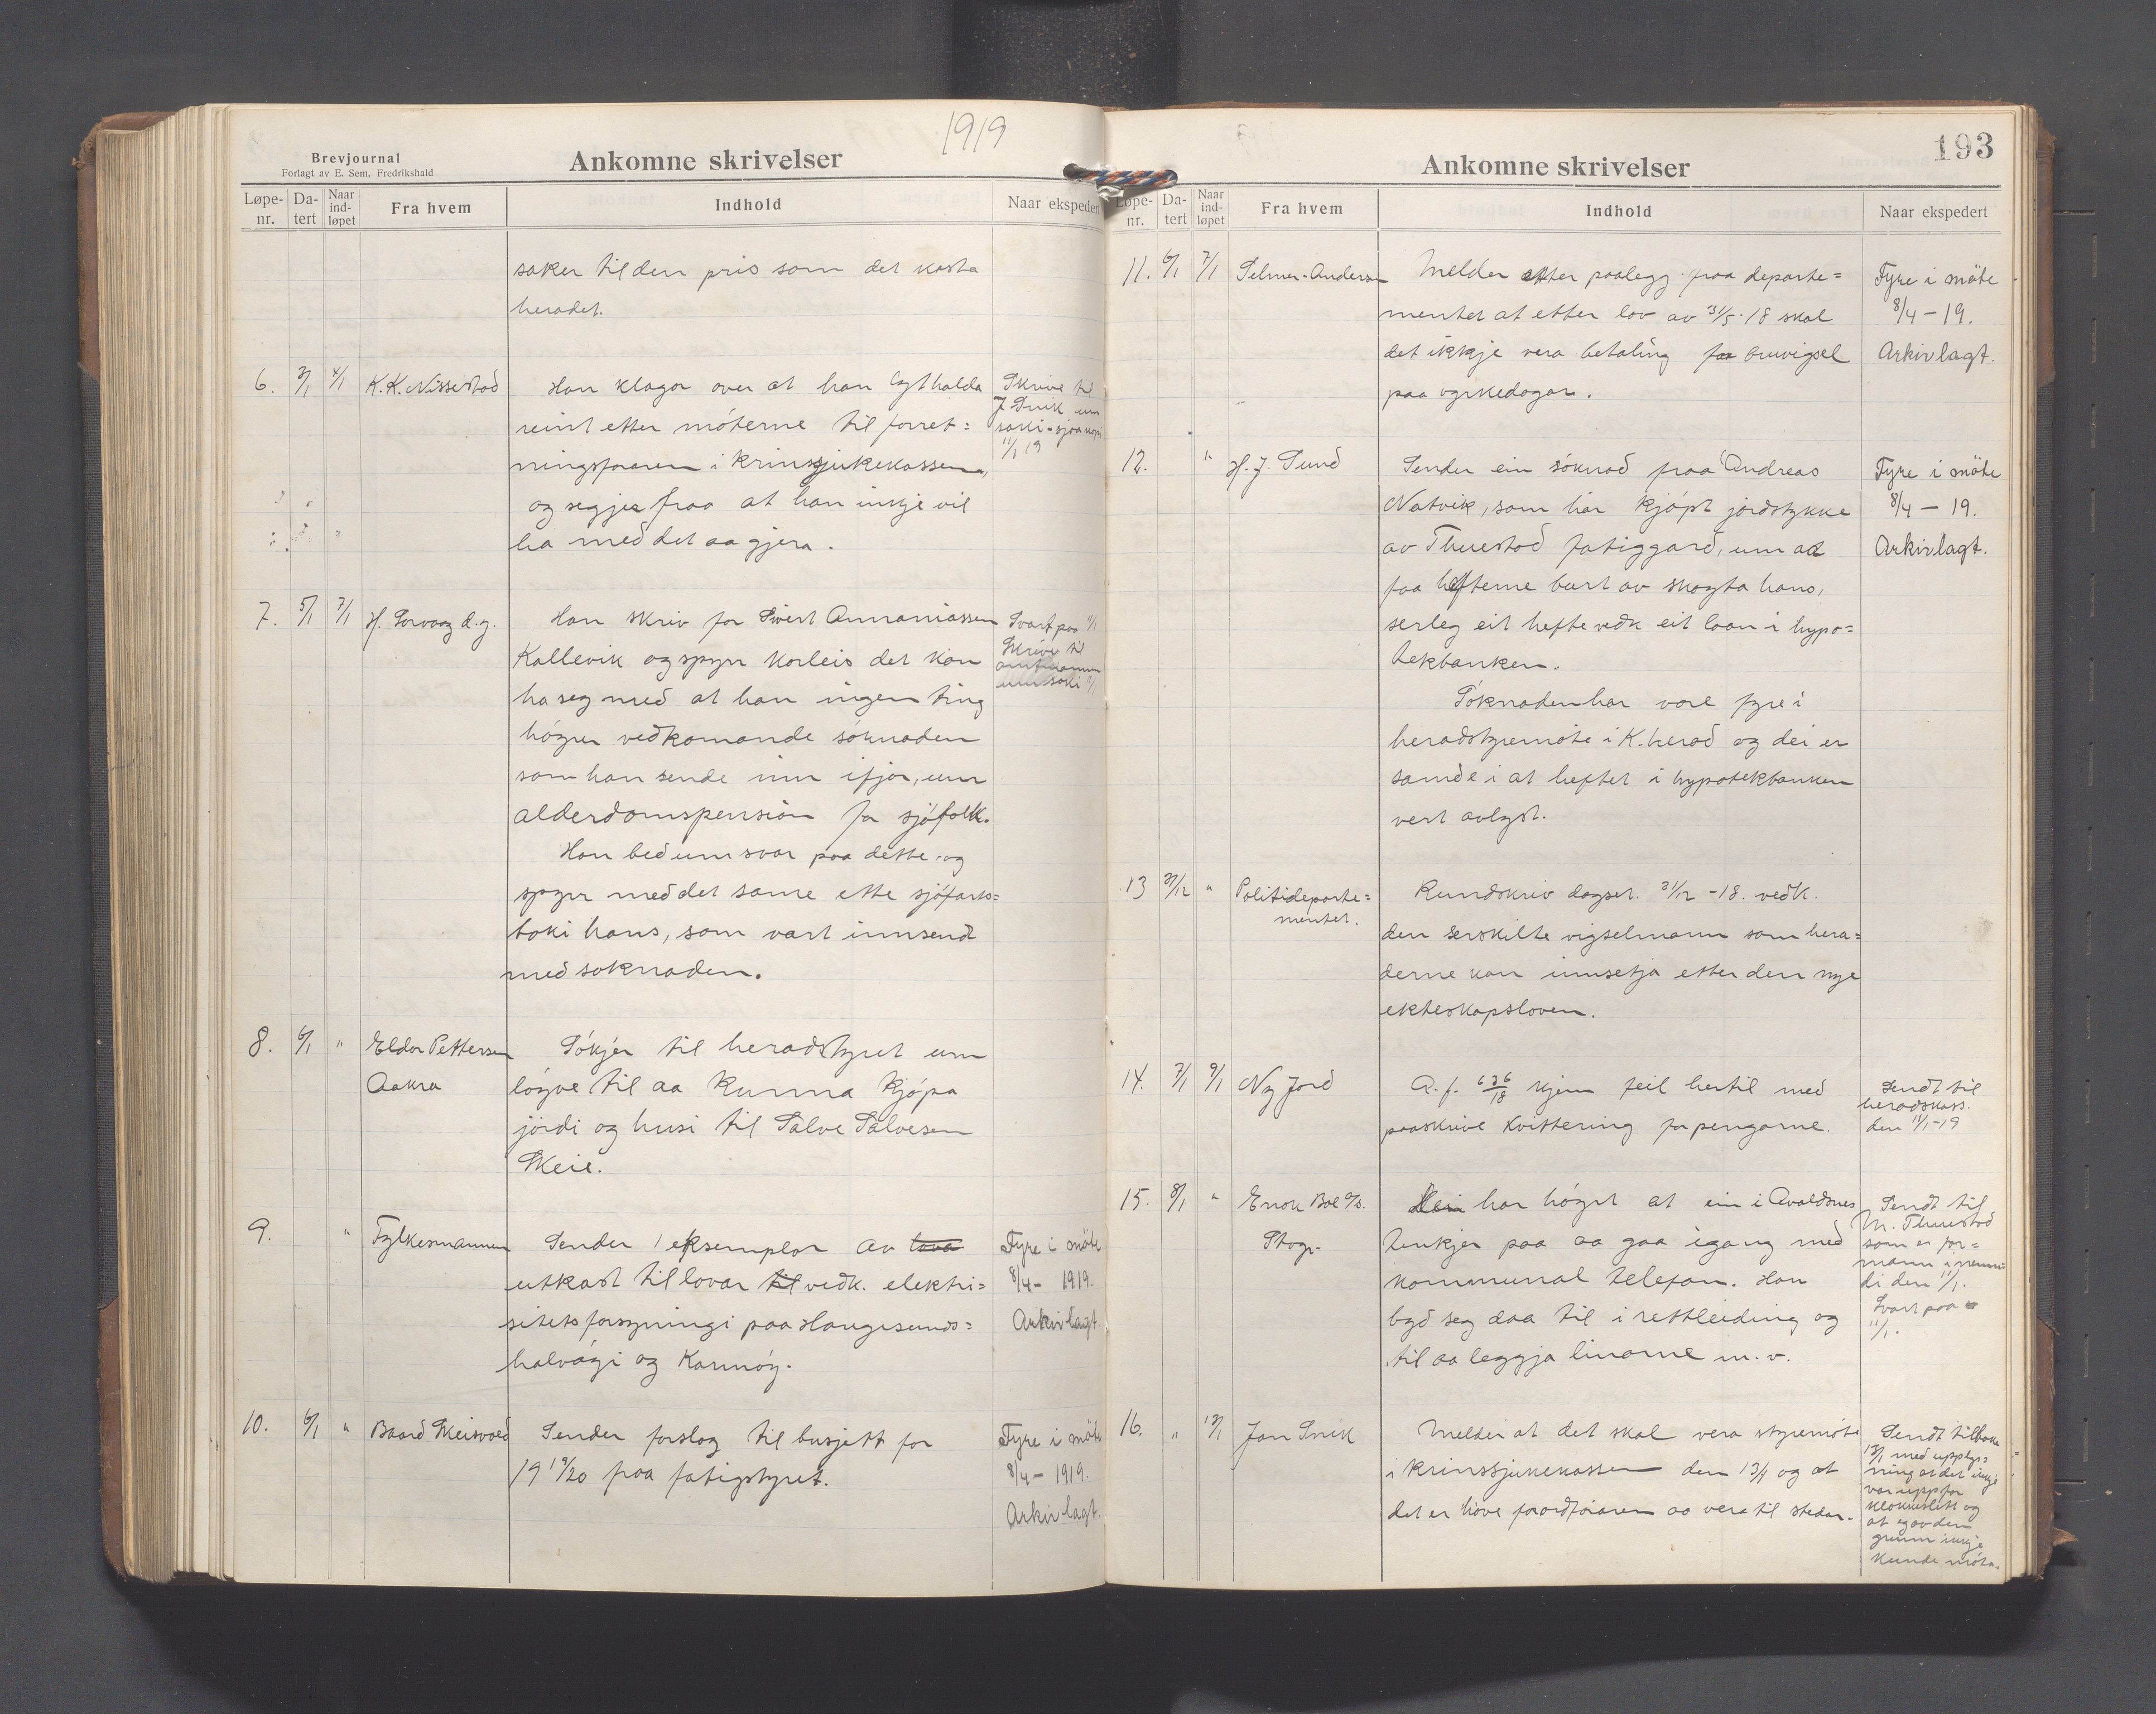 1919
Brevjournal
Forlagt av E. Sem, Fredrikshald
Ankomne skrivelser
Løpe-nr. Da-tert Naar ind-løpet Fra hvem Indhold Naar ekspedert
saker til den pris som det kosta
heradet.
6. 3/1 4/1 K. K. Nissestad
Han klagar over at han lyt halda
reint etter móterne til forret=
ningsföraren i krinssjukekassen,
og segjer fraa at han inkje vil
ha med det aa gjera.
Skrive til
J Snik um
11/1 19
7. 5/1 7/1 H. Sorvaag d.y.
Han skriv for Sivert Annaniassen
Kallevik og spyrr korleis det kan
ha seg med at han ingen ting
högrer vedkomande söknaden
som han sende inn ifjor, um
alderdomspension for sjöfolk.
Han bed um svar paa dette og
spyrr med det same ette sjöfarts=
boki hans, som vart innsend
med soknaden.
Svart paa 11/1
Skrive til
amtmannen
um saki 11/1
8. 6/1 " Eldor Pettersen
Aakra
Sökjer til heradstyret um
lögve til aa kunna kjöpa
jördi og husi til Salve Salvesen
Skeie.
9. " Fylkesmannen
Sender 1 eksemplar av lova
utkast til lovar til vedk. elektri=
sitetsforsyningi paa Haugesunds=
halvögi og Karmöy.
Fyre i möte
8/4 - 1919.
Arkivlagt.
10. 6/1 " Baard Skeisvoll
Sender forslag til busjett for
19 19/20 fraa fatigstyret.
Fyre i möte
8/4 - 1919.
Arkivlagt.
193
Ankomne skrivelser
Løpe-nr. Da-tert Naar ind-løpet Fra hvem Indhold Naar ekspedert
11. 6/1 7/1 Selmer-Anderssen
Melder etter paalegg fraa departe=
mentet at etter lov av 31/5-18 skal
det ikkje vera betaling for bruvigsel
paa yrkedagar.
Fyre i möte
8/4 - 19.
Arkivlagt.
12. " H. J. Sund
Sender ein söknad fraa Andreas
Natvik, som har kjöpt jordstykke
av Thuestad fatiggard, um aa
faa hefterne burt av skøyta hans,
serleg eit hefte vedk eit laan i hypo=
tekbanken.
Söknaden har vore fyre i
heradstyremöte i K.herad og dei er
samde i at heftet i hypotekbanken
vert avlyst.
Fyre i möte
8/4 - 19.
Arkivlagt.
13 31/12 " Politideparte=
mentet.
Rundskriv dagset. 31/12 -18. vedk.
den serskilte vigselmann som hera=
derne kan innsetja etter den nye
ekteskapsloven.
14. 7/1 9/1 Ny Jord
A. f. 636/18 kjem feil hertil med
paaskrive kvittering for pengarne.
Sendt til
heradskass.
den 11/1-19
15. 8/1 " Enok Boe a/s.
Skogr.
Han har högrt at ein i Avaldsnes
tenkjer paa aa gaa igang med
kommunal telefon. Han
byd seg daa til i rettleiding og
til aa leggja linorne m.v.
Sendt til
M. Thuestad
som er for=
mann i nemn=
di den 11/1.
Svart paa
11/1.
16. " 13/1 Jon Snik
Melder at det skal vera styremöte
i krinssjukekassen den 13/1 og at
det er höve for ordföraren aa vera til stedar.
Sendt tilbake
13/1 med upplys=
ning at det inkje
var upp for
klokkeslett og
at eg av den
grunn inkje
kunde möta.